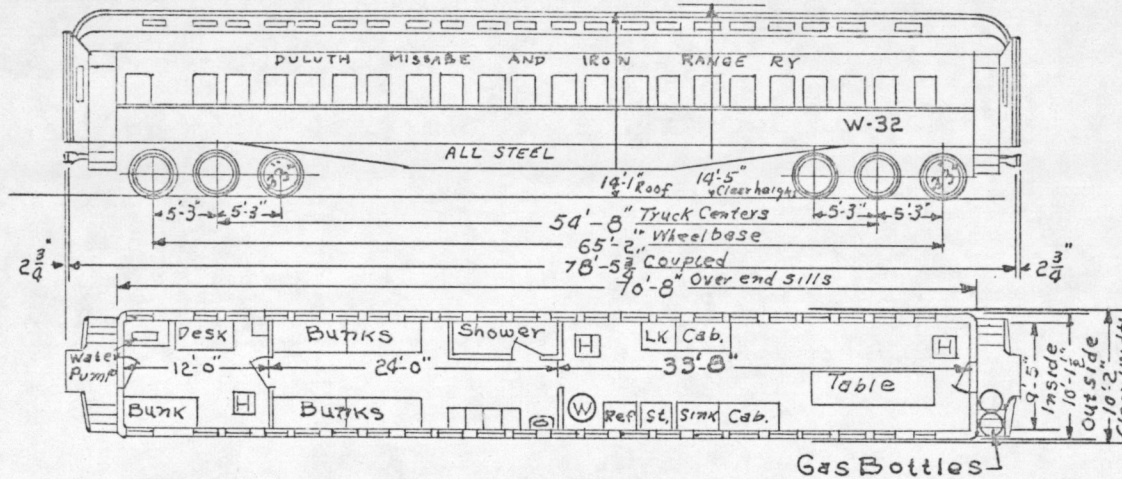 DULUTH MISSABE AND IRON RANGE RY
W-32
ALL STEEL
14'-1" Roof
14'-5" Clear height
33" 33"
5'-3" 5'-3" 5'-3" 5'-3"
54'-8" Truck Centers
65'-2" Wheelbase
2 3/4" 78'-5 3/4" Coupled 2 3/4"
70'-8" Over end sills
Desk Bunks Shower H LK Cab. H
Water Pump
12'-0" 24'-0" 33'-8"
Table
Bunk H Bunks W Ref St. Sink Cab.
9'-5" Inside
10'-1 5/8" Outside
10'-2"
Gas Bottles